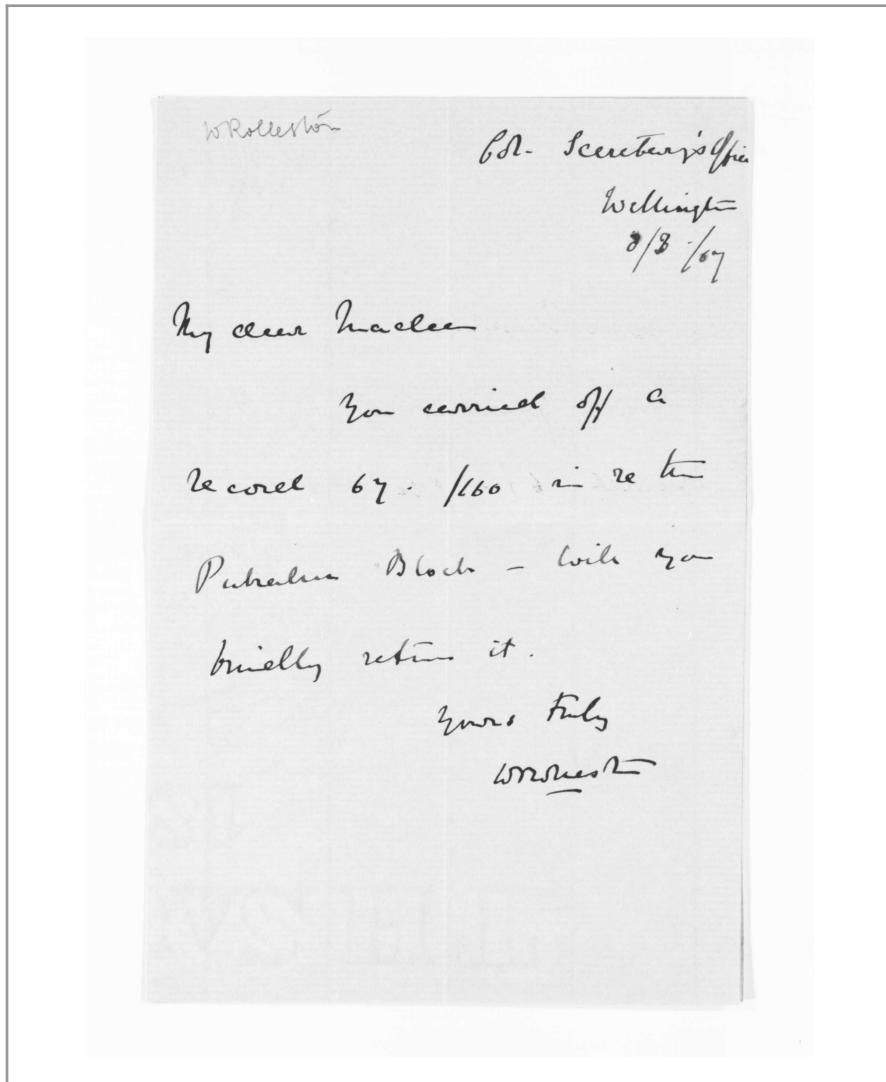 WRolleston
Col. Secretary's Office
Wellington
8/8/67
My dear Maclean
You carried off a
record 67./160 in re the
Block - Will you
kindly return it.
Yours truly
WRolleston